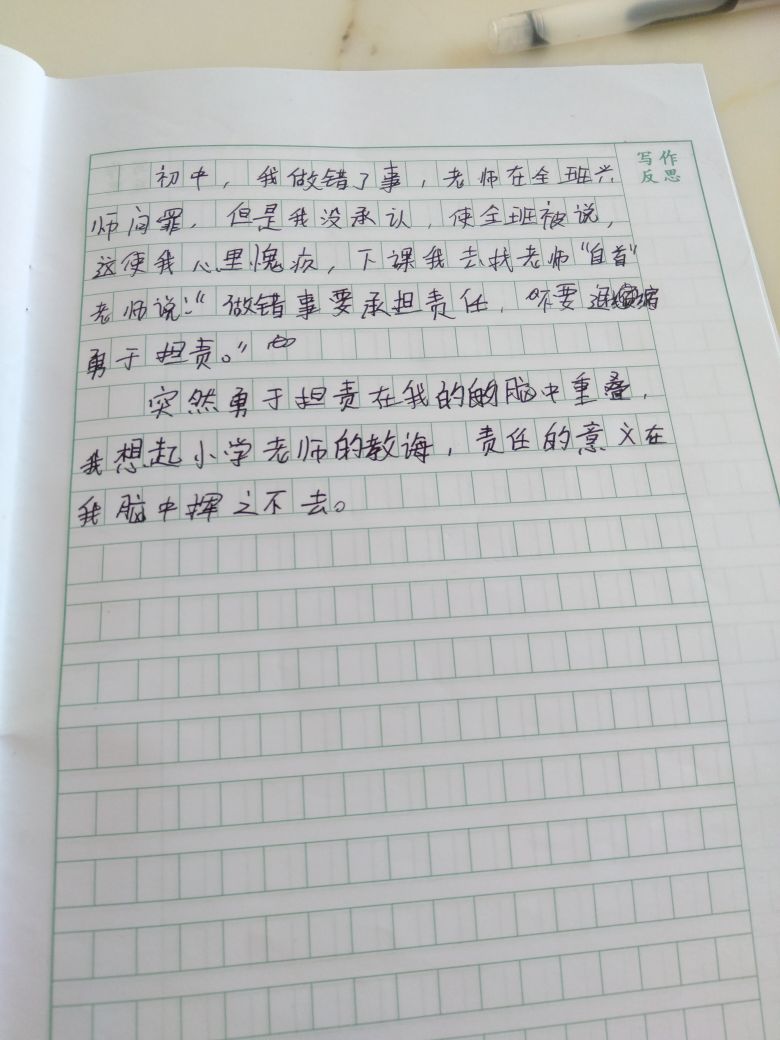 初中，我做错了事，老师在全班兴
写作
反思
师问罪，但是我没承认，使全班被说，
这使我心里愧疚，下课我去找老师“自首”
老师说：“做错事要承担责任，不要退缩
勇于担责。”
突然勇于担责在我的脑中重叠，
我想起小学老师的教诲，责任的意义在
我脑中挥之不去。